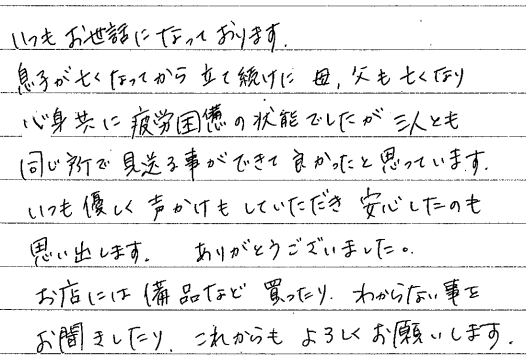 いつもお世話になっております.
息子が亡くなってから立て続けに母,父も亡くなり
心身共に疲労困憊の状態でしたが三人とも
同じ所で見送る事ができて良かったと思っています.
いつも優しく声かけもしていただき安心したのも
思い出します. ありがとうございました。
お店には備品など買ったり.わからない事を
お聞きしたり.これからもよろしくお願いします.